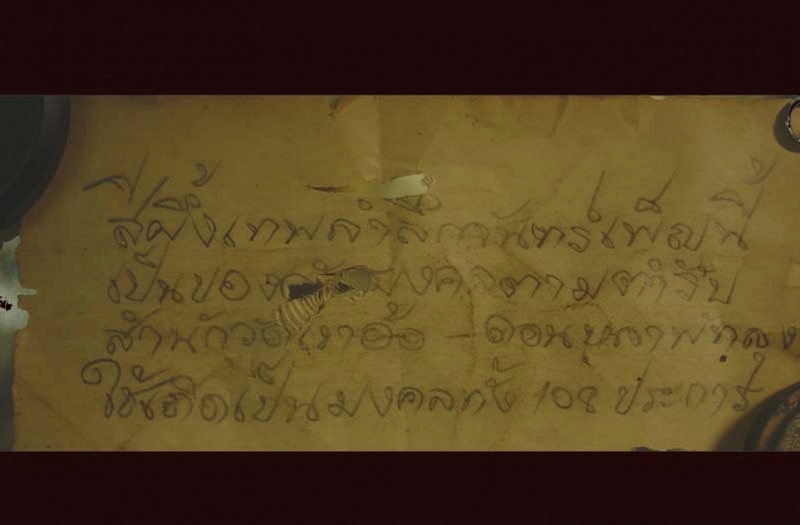 สีผึ้งเทพลำลึกาจันทร์เพ็ญนี้
เป็นของ มงคลตามตำรับ
สำนักวัดเขาอ้อ – ดอนศาลา
ให้เกิดเป็นมงคลทั้ง 108 ประการ